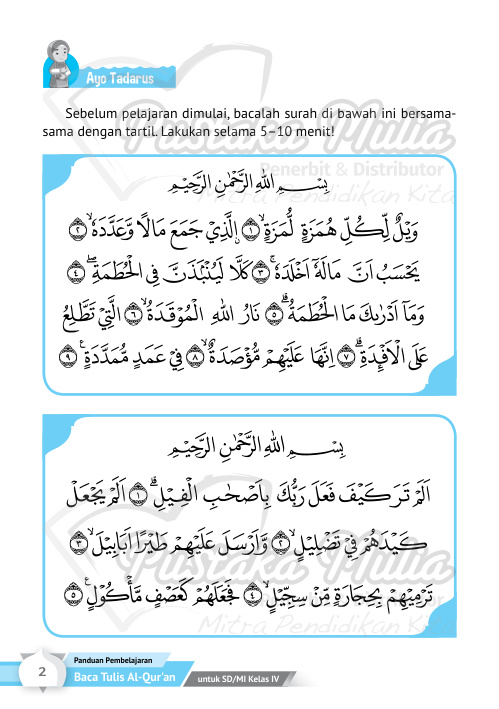 Ayo Tadarus
Sebelum pelajaran dimulai, bacalah surah di bawah ini bersama-
sama dengan tartil. Lakukan selama 5–10 menit!
Pustaka Mulia
Penerbit & Distributor
Mitra Pendidikan Kita
بِسْــمِ اللّٰهِ الرَّحْمٰنِ الرَّحِيْمِ
وَيْلٌ لِّكُلِّ هُمَزَةٍ لُّمَزَةٍۙ ﴿١﴾ ۨالَّذِيْ جَمَعَ مَالًا وَّعَدَّدَهٗۙ ﴿٢﴾
يَحْسَبُ اَنَّ مَالَهٗٓ اَخْلَدَهٗۚ ﴿٣﴾ كَلَّا لَيُنْۢبَذَنَّ فِى الْحُطَمَةِۖ ﴿٤﴾
وَمَآ اَدْرٰىكَ مَا الْحُطَمَةُۗ ﴿٥﴾ نَارُ اللّٰهِ الْمُوْقَدَةُۙ ﴿٦﴾ الَّتِيْ تَطَّلِعُ
عَلَى الْاَفْـِٕدَةِۗ ﴿٧﴾ اِنَّهَا عَلَيْهِمْ مُّؤْصَدَةٌۙ ﴿٨﴾ فِيْ عَمَدٍ مُّمَدَّدَةٍۚ ﴿٩﴾
بِسْــمِ اللّٰهِ الرَّحْمٰنِ الرَّحِيْمِ
اَلَمْ تَرَ كَيْفَ فَعَلَ رَبُّكَ بِاَصْحٰبِ الْفِيْلِۗ ﴿١﴾ اَلَمْ يَجْعَلْ
كَيْدَهُمْ فِيْ تَضْلِيْلٍۙ ﴿٢﴾ وَّاَرْسَلَ عَلَيْهِمْ طَيْرًا اَبَابِيْلَۙ ﴿٣﴾
تَرْمِيْهِمْ بِحِجَارَةٍ مِّنْ سِجِّيْلٍۙ ﴿٤﴾ فَجَعَلَهُمْ كَعَصْفٍ مَّأْكُوْلٍۚ ﴿٥﴾
Pustaka Mulia
Mitra Pendidikan Kita
2
Panduan Pembelajaran
Baca Tulis Al-Qur'an
untuk SD/MI Kelas IV